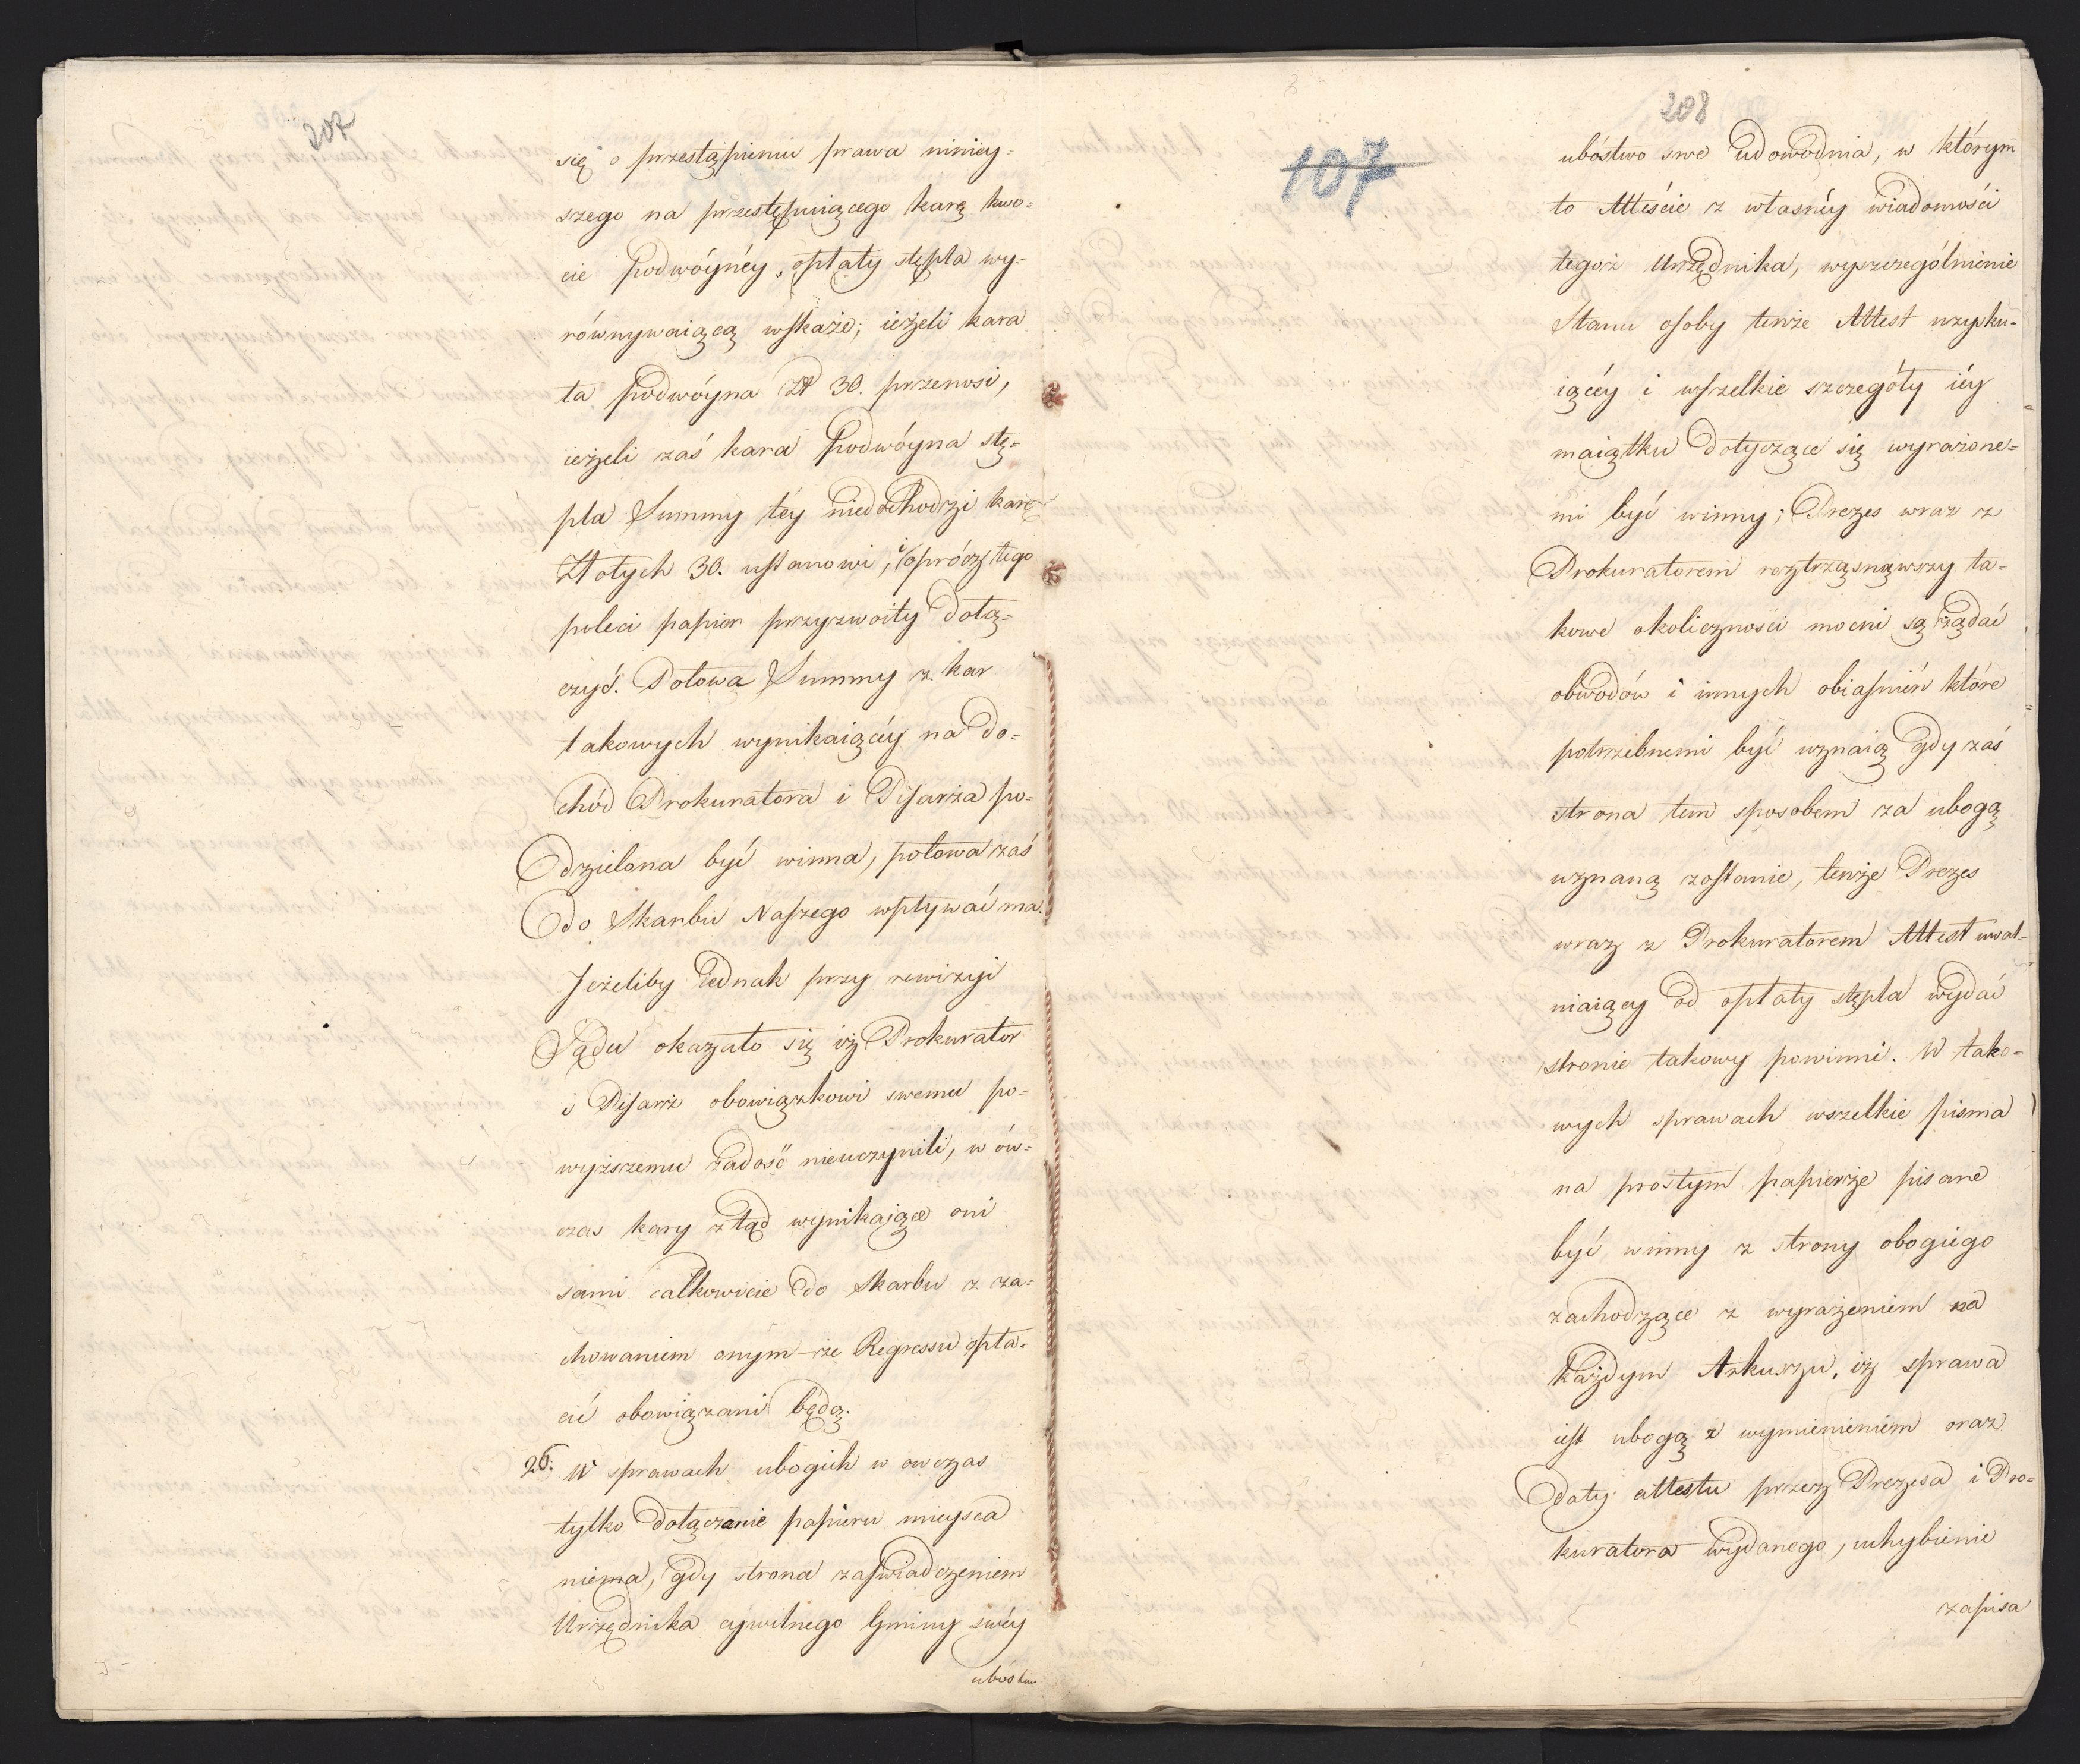 207
się o przestąpieniu prawa niniey=
szego na przestępuiącego karę kwo=
cie podwóynéy, opłaty stępla wy=
równywaiącą wskaże; ieżeli kara
ta podwóyna Zł 30. przenosi,
ieżeli zaś kara podwóyna stę=
pla Summy téy niedochodzi karę
Złotych 30. ustanowi, i oprócz tego
poleci papier przyzwoity dołą=
czyć. Połowa Summy z kar
takowych wynikaiącéy na do=
chód Prokuratora i Pisarza po=
dzielona być winna, połowa zaś
do Skarbu Naszego wpływać ma.
Jeżeliby iednak przy rewizyi
Sądu okazało się iż Prokurator
i Pisarz obowiązkowi swemu po=
wyższemu zadość nieuczynili, w ów=
czas kary ztąd wynikaiące oni
sami całkowicie do Skarbu z za=
chowaniem onym-że Regressu opła=
cić obowiązani będą.
26. W sprawach ubogich w owczas
tylko dołączenie papieru mieysca
niema, gdy strona zaświadczeniem
Urzędnika cywilnego Gminy swéy
ubóstwo
107
208
ubóstwo swe udowodnia, w którym
to Atteście z własnéy wiadomości
tegoż Urzędnika, wyszczególnienie
Stanu osoby tenże Attest uzysku=
iącéy i wszelkie szczegóły iéy
maiątku dotyczące się wyrażone=
mi być winny; Prezes wraz z
Prokuratorem roztrząsnąwszy ta=
kowe okoliczności mocni są żądać
obwodów i innych obiaśnień które
potrzebnemi być uznaią gdy zaś
strona tem sposobem za ubogą
uznaną zostanie, tenże Prezes
wraz z Prokuratorem Attest uwal=
niaiący od opłaty stępla wydać
stronie takowy powinni. W tako=
wych sprawach wszelkie pisma
na prostym papierze pisane
być winny z strony obogiego
zachodzące z wyrażeniem na
każdym Arkuszu, iż sprawa
iest ubogą z wymienieniem oraz
daty attestu przez Prezesa i Pro=
kuratora wydanego, uchybienie
zapisa